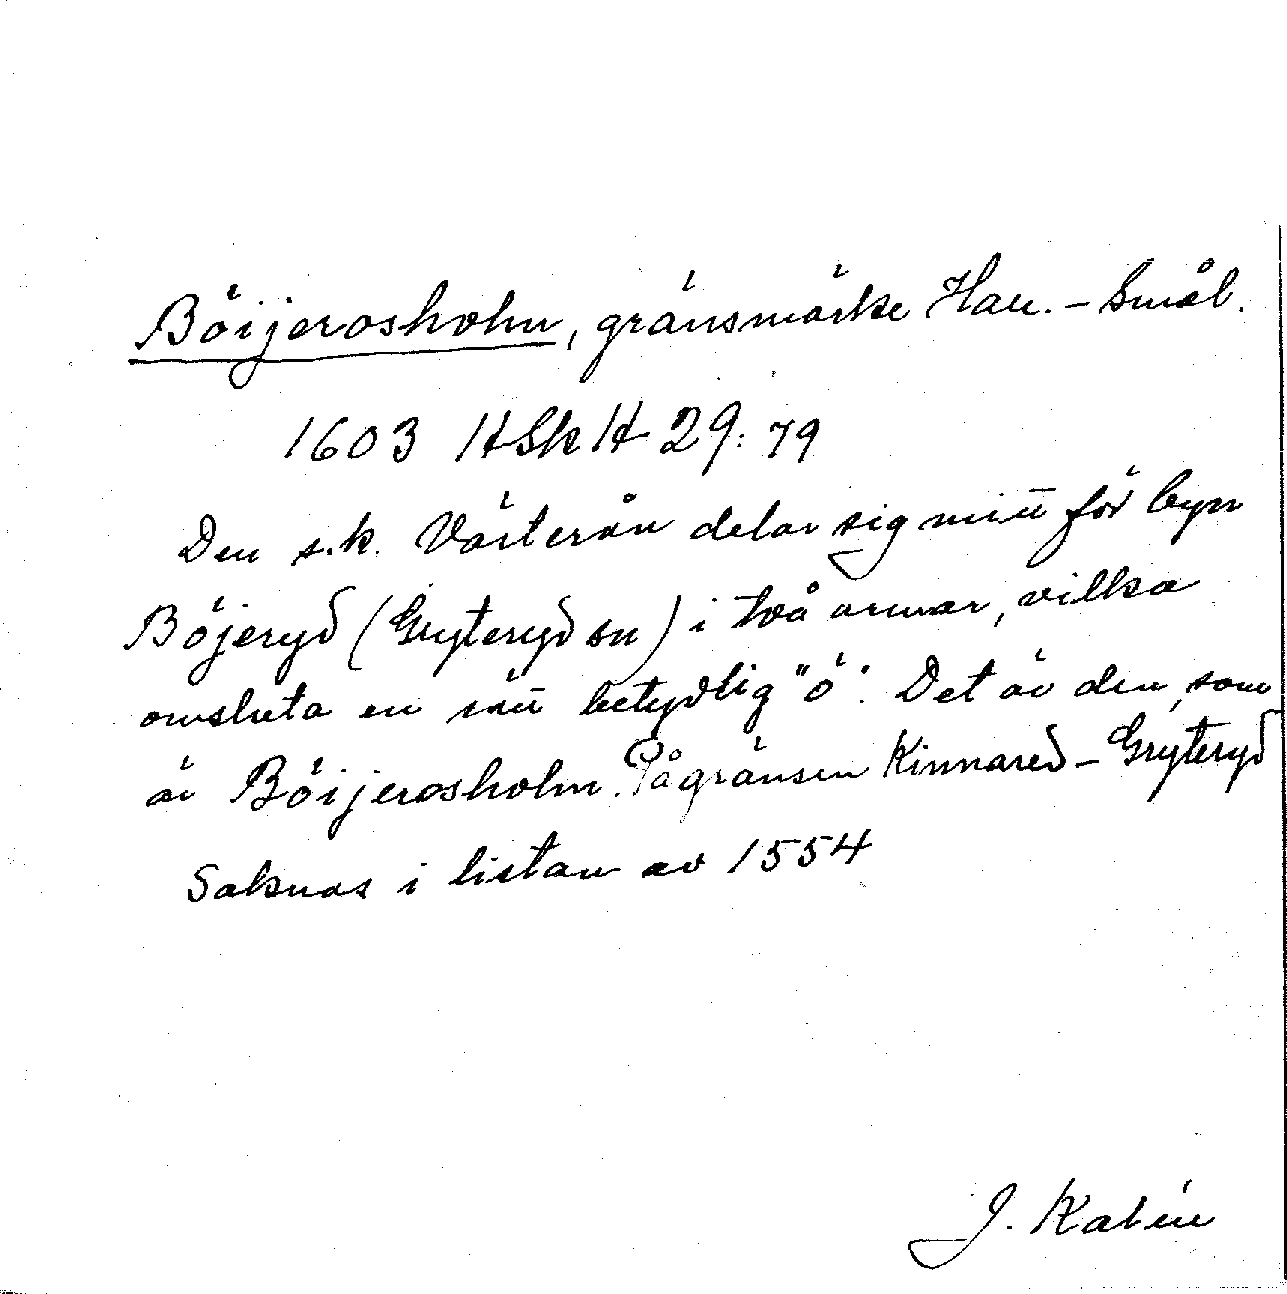 Böijerosholm, gränsmärke Hall.-Smål.
1603 HSkH 29:79
Den s.k. Västerån delar sig mitt för byn
Böjeryd (Gryteryd sn) i två armar, vilka
omsluta en rätt betydlig "ö". Det är den, som
är Böijerosholm. På gränsen Kinnared-Gryteryd
Saknas i listan av 1554
J. Kalén